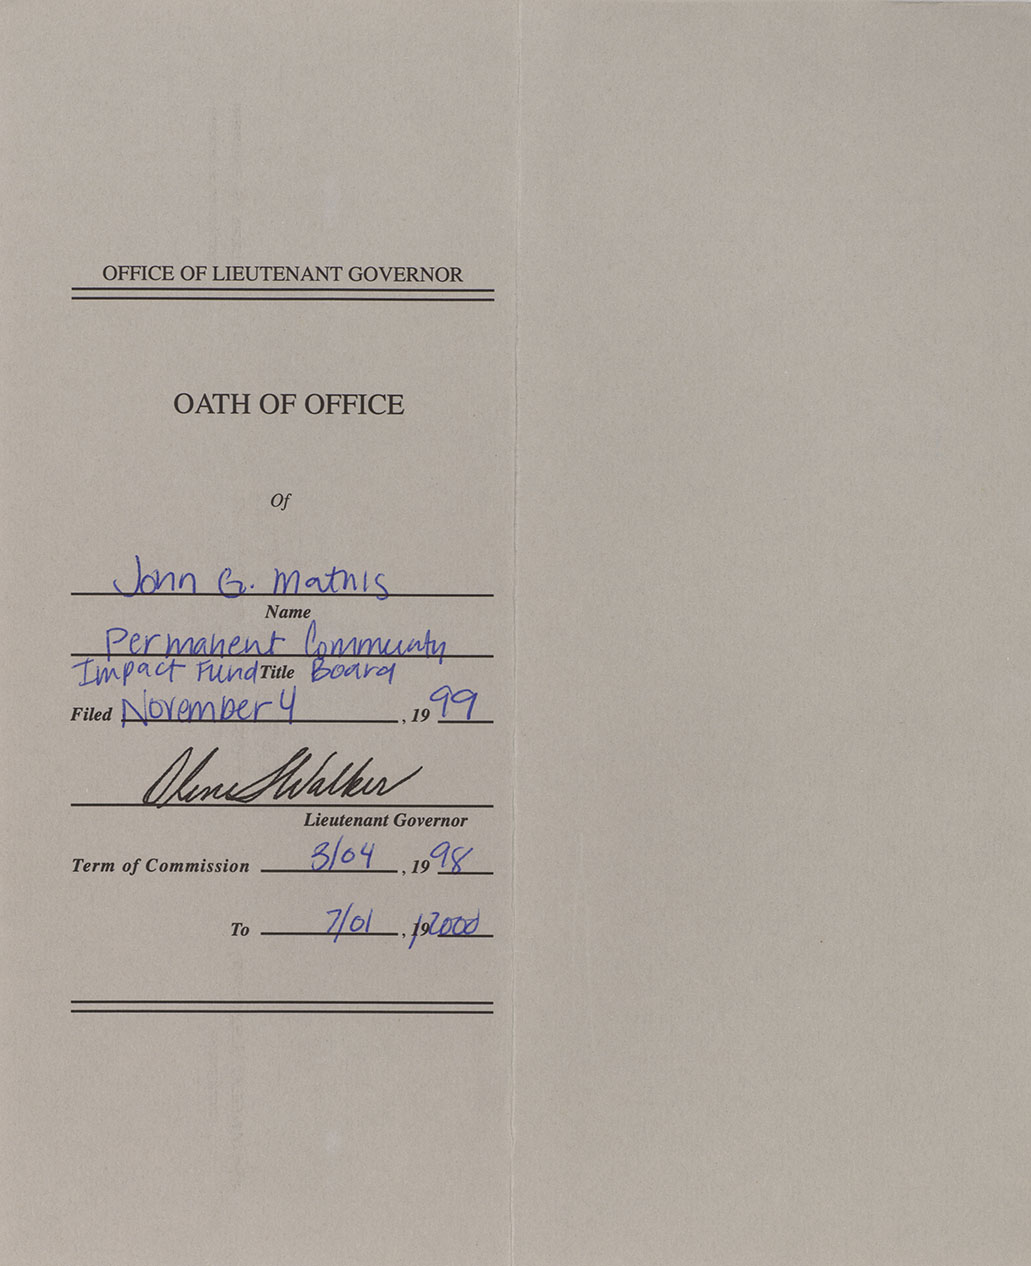 OFFICE OF LIEUTENANT GOVERNOR
OATH OF OFFICE
Of
John G. Mathis
Name
Permanent Community
Impact Fund Title Board
Filed November 4, 19 99
Olene S Walker
Lieutenant Governor
Term of Commission 3/04, 19 98
To 7/01, 19 2000